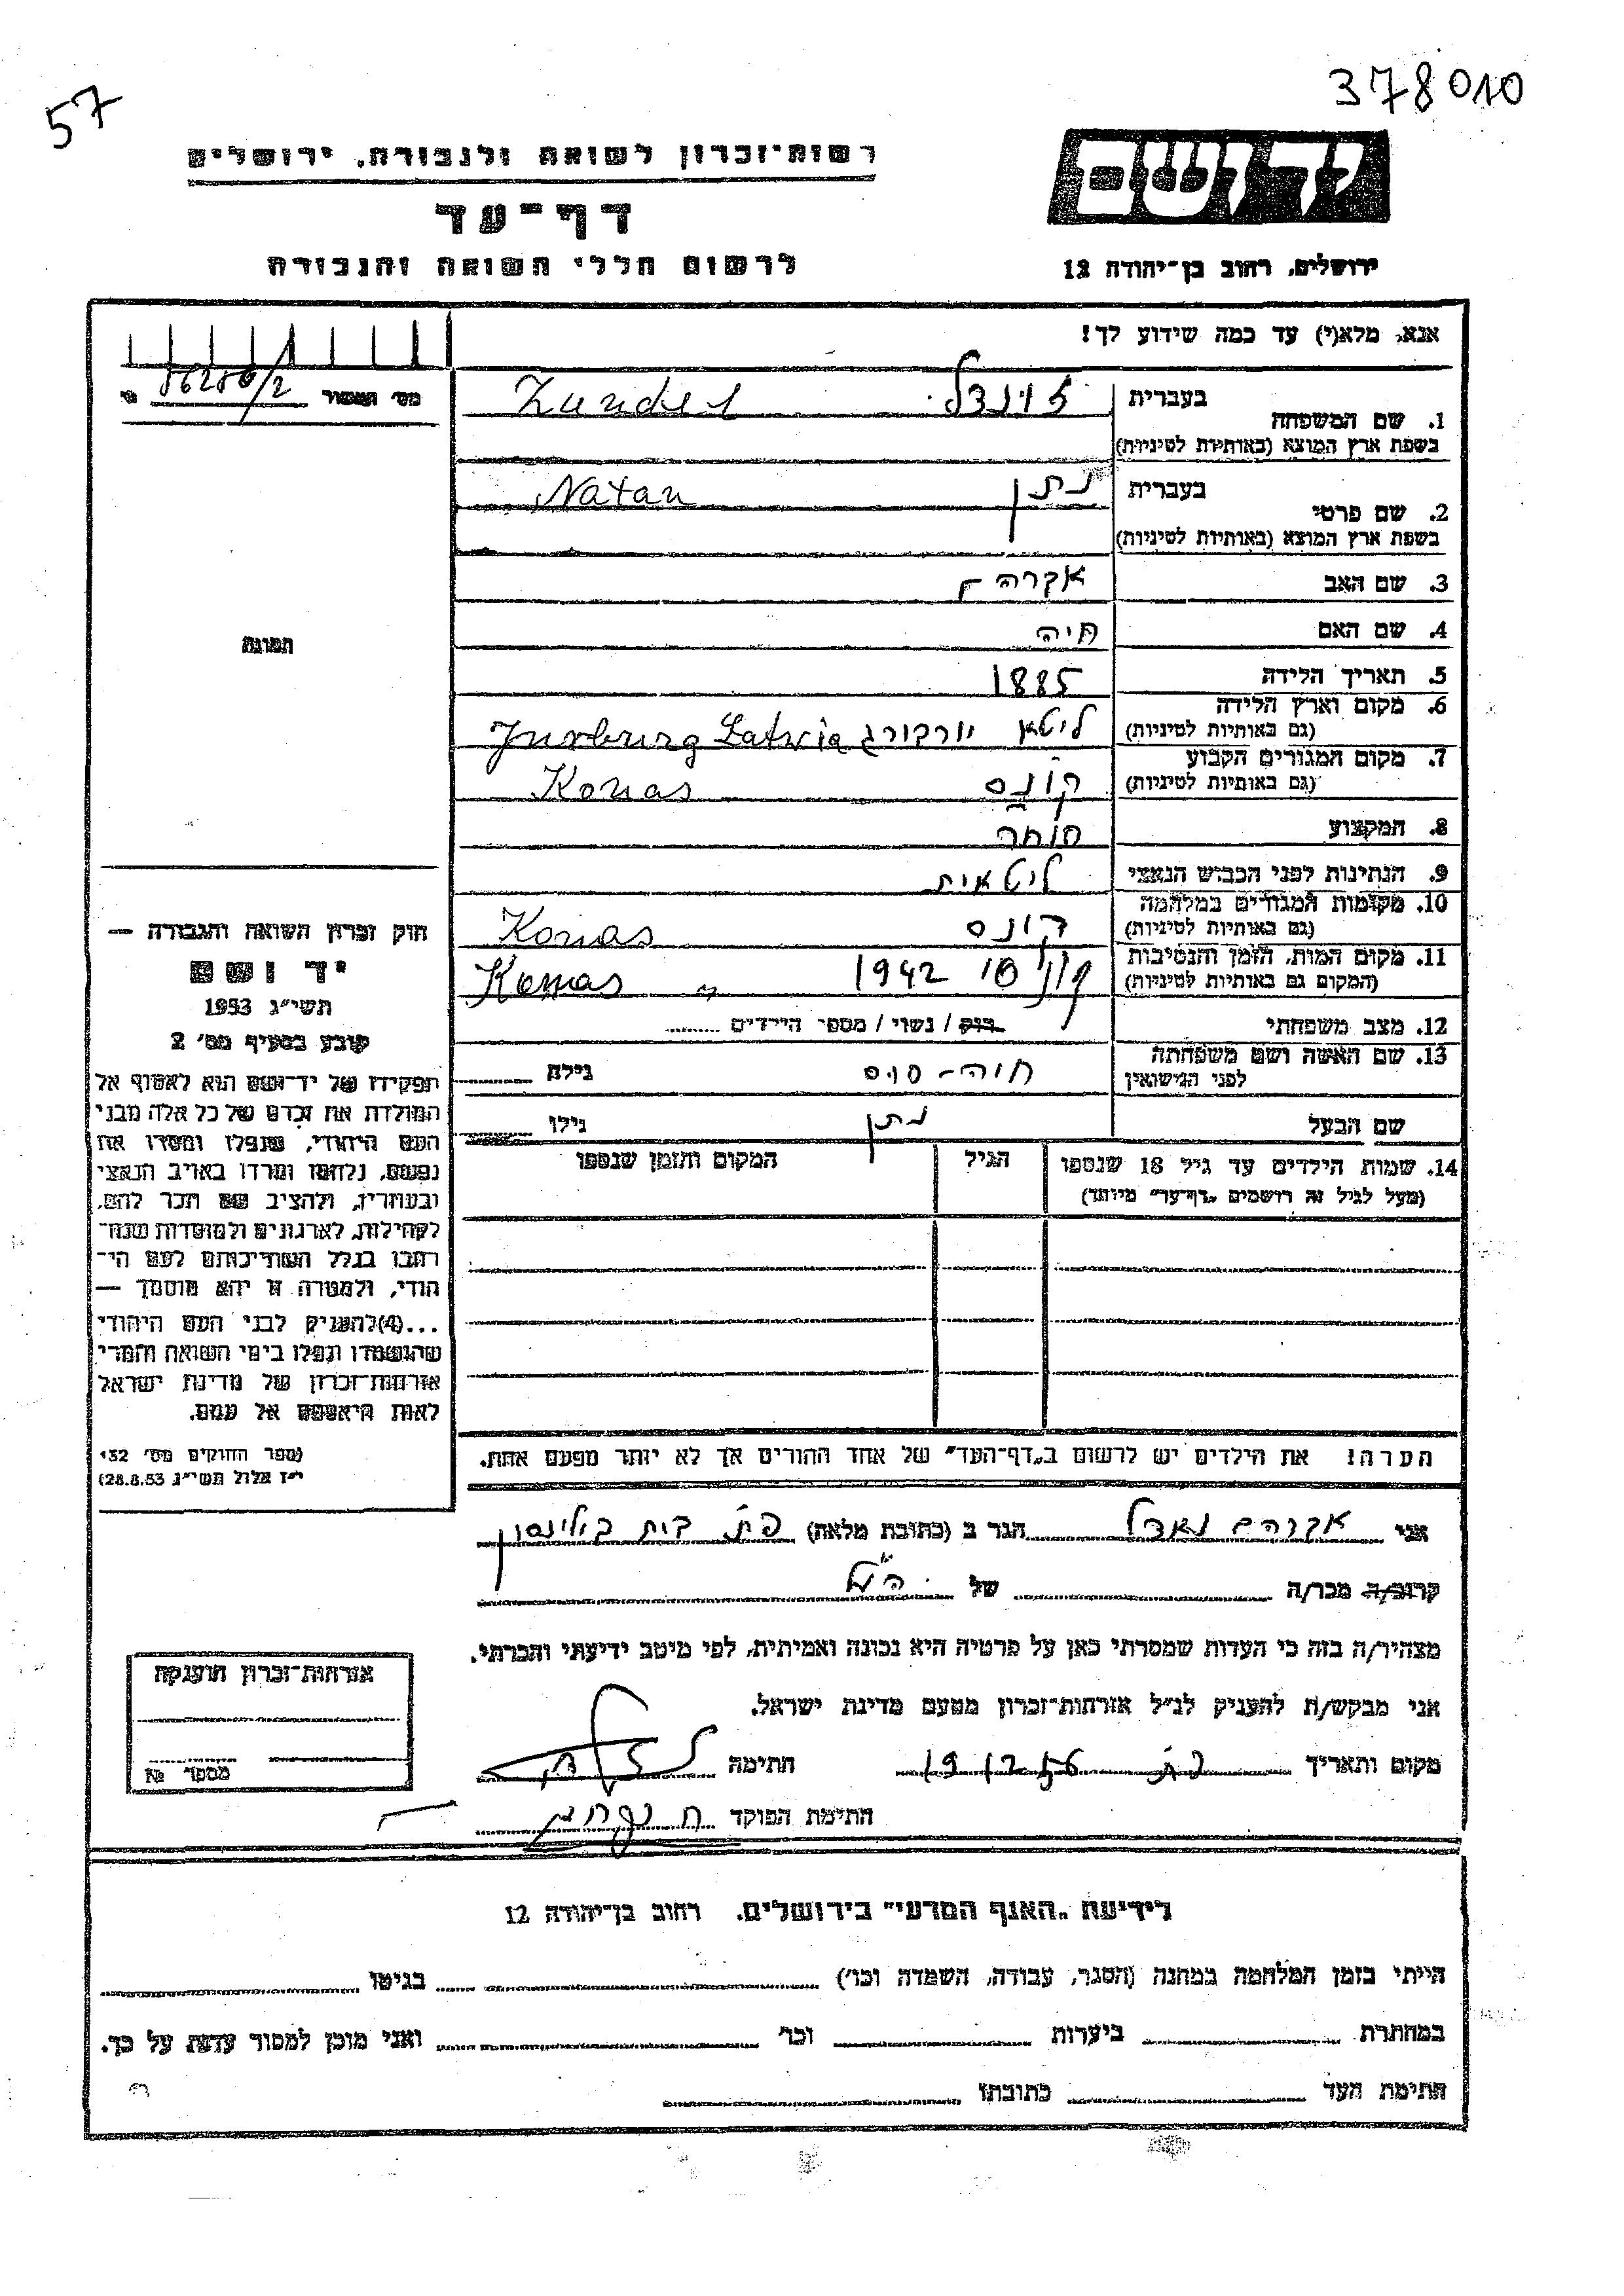 57
378010
רשות־זכרון לשואה ולגבורה, ירושלים
יד ושם
דף־עד
לרשום חללי השואה והגבורה
ירושלים, רחוב בן־יהודה 12
אנא, מלא(י) עד כמה שידוע לך!
מס׳ המפקד
1. שם המשפחה
בעברית זונדל Zundel
בשפת ארץ המוצא (באותיות לטיניות)
2. שם פרטי
בעברית נתן Natan
בשפת ארץ המוצא (באותיות לטיניות)
3. שם האב אברהם
4. שם האם חיה
5. תאריך הלידה 1885
6. מקום וארץ הלידה
(גם באותיות לטיניות) ליטא יורבורג Jurburg Latvia
7. מקום המגורים הקבוע
(גם באותיות לטיניות) קובנס Konas
8. המקצוע סוחר
9. הנתינות לפני הכבוש הנאצי ליטאית
10. מקומות המגורים במלחמה
(גם באותיות לטיניות) קונס Konas
11. מקום המות, הזמן והנסיבות
(המקום גם באותיות לטיניות) 1942 Konas
12. מצב משפחתי רווק / נשוי / מספר הילדים
13. שם האשה ושם משפחתה
לפני הנישואין חיה - גילה
שם הבעל נתן גילו
14. שמות הילדים עד גיל 18 שנספו
(מעל לגיל זה רושמים "דף־עד" מיוחד)
הגיל
המקום והזמן שנספו
הערה! את הילדים יש לרשום ב"דף־העד" של אחד ההורים אך לא יותר מפעם אחת.
תמונה
חוק זכרון השואה והגבורה —
יד ושם
תשי"ג 1953
קובע בסעיף מס׳ 2
תפקידו של יד־ושם הוא לאסוף אל
המולדת את זכרם של כל אלה מבני
העם היהודי, שנפלו ומסרו את
נפשם, נלחמו ומרדו באויב הנאצי
ובעוזריו, ולהציב שם וזכר להם,
לקהילות, לארגונים ולמוסדות שנח־
רבו בגלל השתייכותם לעם הי־
הודי, ולמטרה זו יהא מוסמך —
...(4) להעניק לבני העם היהודי
שהושמדו ונפלו בימי השואה והמרי
אזרחות־זכרון של מדינת ישראל
לאות היאספם אל עמם.
(ספר החוקים מס׳ 132
י"ז אלול תשי"ג 28.8.53)
אני אברהם הגר ב (כתובת מלאה) פת בית בילינסון
קרוב/ה מכר/ה של הנ"ל
מצהיר/ה בזה כי העדות שמסרתי כאן על פרטיה היא נכונה ואמיתית, לפי מיטב ידיעתי והכרתי.
אני מבקש/ת להעניק לנ"ל אזרחות־זכרון מטעם מדינת ישראל.
מקום ותאריך חתימה
חתימת הפוקד
אזרחות־זכרון הוענקה
מספר №
לידיעת "האגף המדעי" בירושלים, רחוב בן־יהודה 12
הייתי בזמן המלחמה במחנה (הסגר, עבודה, השמדה וכו׳) בגיטו
במחתרת ביערות וכו׳ ואני מוכן למסור עדות על כך.
חתימת העד כתובתו